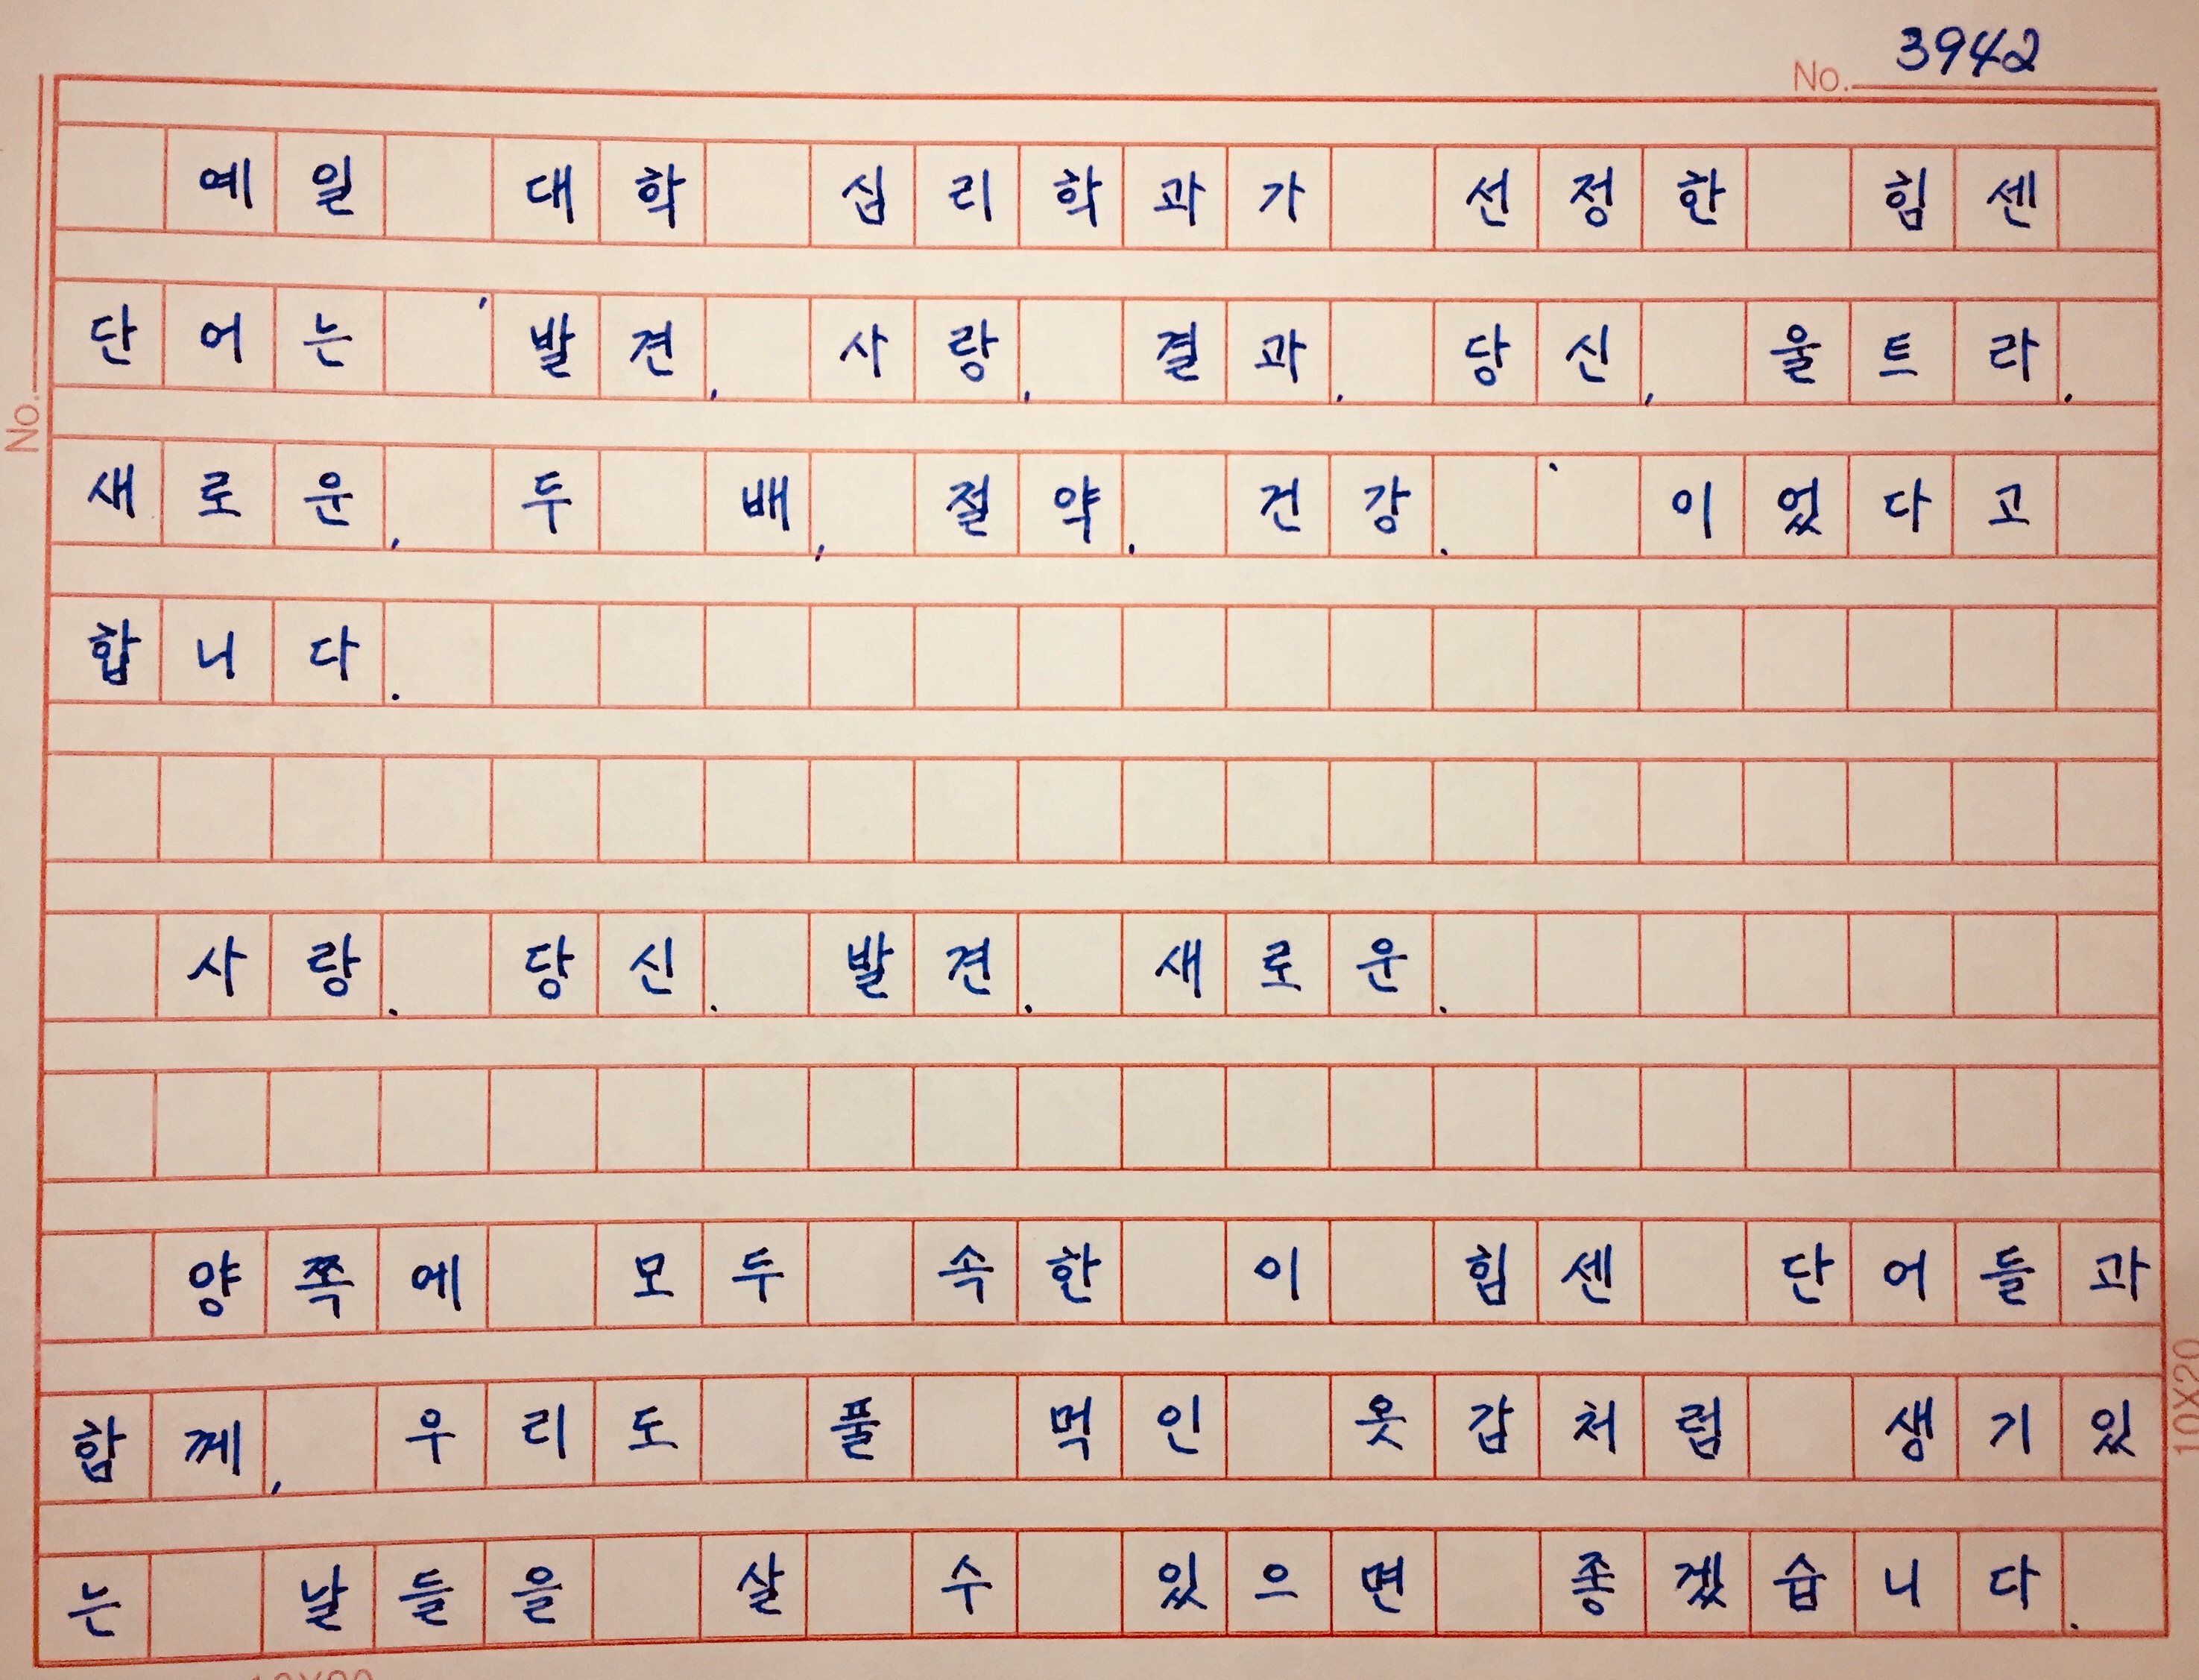 No. 3942
예일 대학 십리학과가 선정한 힘센
단어는 '발견, 사랑, 결과, 당신, 울트라,
새로운, 두 배, 절약, 건강.' 이었다고
합니다.
사랑. 당신. 발견. 새로운.
양쪽에 모두 속한 이 힘센 단어들과
함께, 우리도 풀 먹인 옷감처럼 생기있
는 날들을 살 수 있으면 좋겠습니다.
No.
10X20
10X20